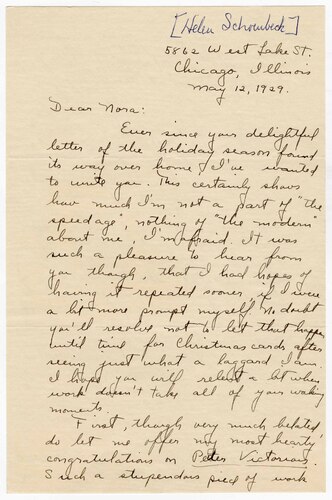 [Helen Schoenbeck]
5862 West Lake St.
Chicago, Illinois
May 12, 1929.
Dear Nora:
Ever since your delightful
letter of the holiday season found
its way over home I've wanted
to write you. This certainly shows
how much I'm not a part of "the
speed age", nothing of "the modern"
about me, I'm afraid. It was
such a pleasure to hear from
you though, that I had hopes of
having it repeated sooner, if I were
a bit more prompt myself. No doubt
you'll resolve not to let that happen
until time for Christmas cards after
seeing just what a laggard I am.
I hope you will relent a bit when
work doesn't take all of your waking
moments.
First, though very much belated
do let me offer my most hearty
congratulations on Peter Victorious.
Such a stupendous piece of work